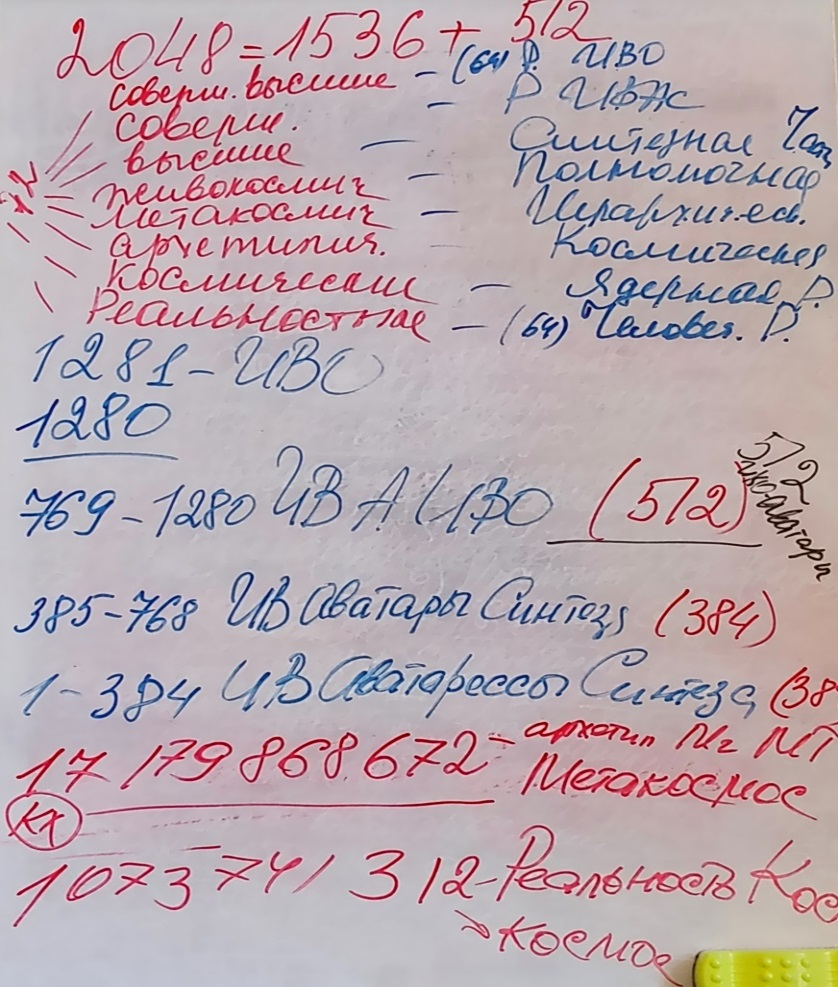 2048 = 1536 + 512
соверш. высшие - (64) Р. ИВО
соверш. - Р ИВАС
высшие - Синтезная Часть
живокосмич - Полномочная
метакосмич - Иерархическ.
архетипич. - Космическая
космические - Ядерная Р.
Реальностные - (64) Человеч. Р.
1281 - ИВО
1280
769 - 1280 ИВ А ИВО (512)
512
385-768 ИВ Аватары Синтеза (384)
1-384 ИВ Аватарессы Синтеза (38
17 179 868 672 - архетип
Метакосмос
1073 741 312 - Реальность Кос
космос